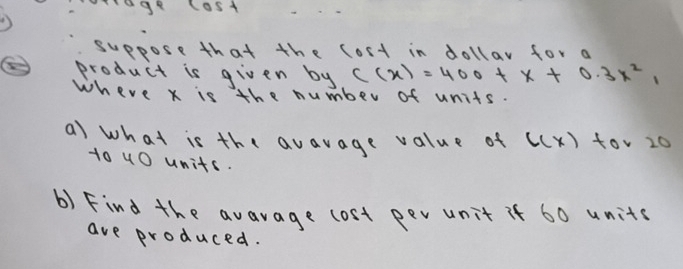 Cost
Suppose that the cost in dollar for a
product is given by C(x) = 400 + x + 0.3x²,
where x is the number of units.
a) What is the avavage value of C(x) for 20
to 40 units.
b) Find the avavage cost per unit if 60 units
are produced.